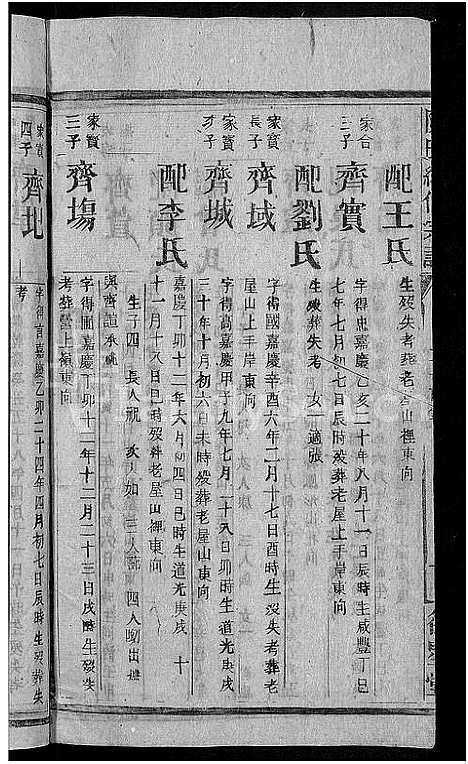 配王氏
生歿失考葬老山裡東向
家合三子
齊實
字得忠嘉慶乙亥二十年八月十一日辰時生咸豐丁巳
七年七月初七日辰時歿葬老屋上手岸東向
配劉氏
生歿葬失考 女一適張
家寳長子
齊域
字得國嘉慶辛酉六年二月十七日酉時生歿失考葬老
屋山上手岸東向
家寳次子
齊城
字得高嘉慶甲子九年七月二十八日卯時生道光庚戌
三十年十月初六日未時歿葬老屋山東向
配李氏
嘉慶丁卯十二年六月初四日巳時生道光庚戌 十
十一月十八日巳時歿葬老屋山裡東向
生子四 長人祝 次人如 三人 四人 出繼
與齊道承祧
家寳三子
齊塲
字得圃嘉慶丁卯十二年十二月二十三日戌時生歿失
考葬營上嶺東向
家寳四子
齊圯
字得嘉慶乙卯二十四年四月初七日辰時生歿葬失
考